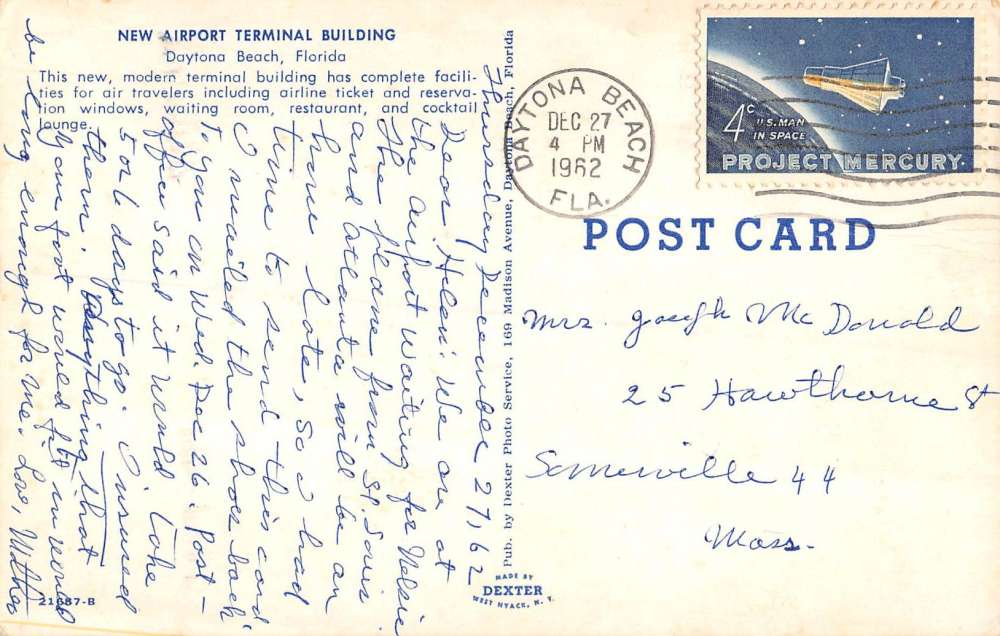 NEW AIRPORT TERMINAL BUILDING
Daytona Beach, Florida
This new, modern terminal building has complete facili-
ties for air travelers including airline ticket and reserva-
tion windows, waiting room, restaurant, and cocktail
lounge.
Thursday December 27, 62
Dear Helen: We are at
the airport waiting for Nelsie
The plane from St. Louis
and Atlanta will be an
hour late, so I had
time to send this card
I mailed the shoes back
To you on Wed. Dec 26. Post-
office said it would take
5 or 6 days to go. I insured
them. Anything that
your foot would fit in would
be long enough for me. Love, Mother
21687-B
Pub. by Dexter Photo Service, 169 Madison Avenue, Daytona Beach, Florida
MADE BY
DEXTER
WEST NYACK, N. Y.
DAYTONA BEACH
DEC 27
4 PM
1962
FLA.
4c
U.S. MAN
IN SPACE
PROJECT MERCURY
POST CARD
Mrs. Joseph McDonald
25 Hawthorne St
Somerville 44
Mass.